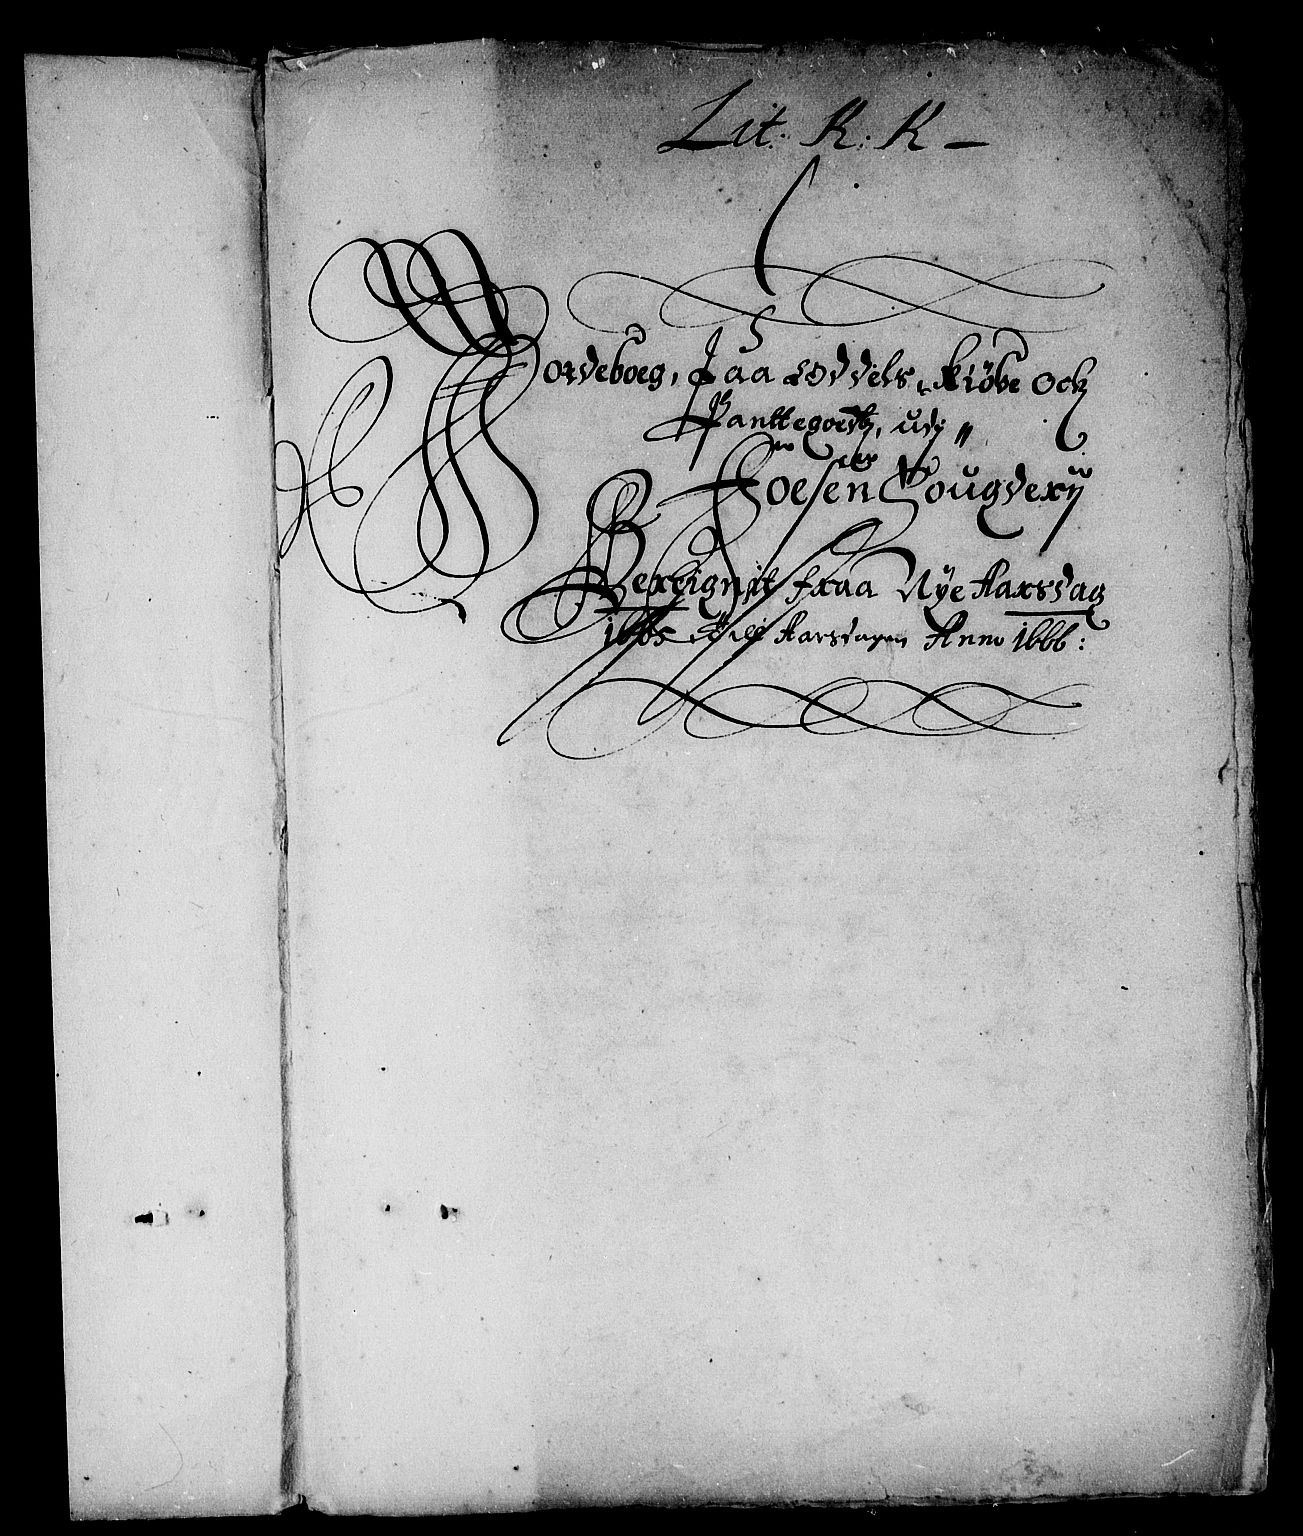 Lit: K: K –
Jordeboeg, Paa Oddels, Kiøbe Ock
Panttegoedtz, udj
Fosen Fougderij
Bereignit fraa Nye Aarsdag
1665 Till Aarsdagen Anno 1666: